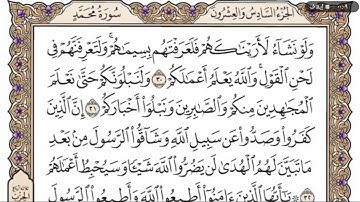 الجزء السادس والعشرون سورة محمد
وَلَوْ نَشَآءُ لَأَرَيْنَٰكَهُمْ فَلَعَرَفْتَهُم بِسِيمَٰهُمْ ۚ وَلَتَعْرِفَنَّهُمْ فِى
لَحْنِ ٱلْقَوْلِ ۚ وَٱللَّهُ يَعْلَمُ أَعْمَٰلَكُمْ ٣٠ وَلَنَبْلُوَنَّكُمْ حَتَّىٰ نَعْلَمَ
ٱلْمُجَٰهِدِينَ مِنكُمْ وَٱلصَّٰبِرِينَ وَنَبْلُوَا۟ أَخْبَارَكُمْ ٣١ إِنَّ ٱلَّذِينَ
كَفَرُوا۟ وَصَدُّوا۟ عَن سَبِيلِ ٱللَّهِ وَشَآقُّوا۟ ٱلرَّسُولَ مِنۢ بَعْدِ
مَا تَبَيَّنَ لَهُمُ ٱلْهُدَىٰ لَن يَضُرُّوا۟ ٱللَّهَ شَيْـًٔا وَسَيُحْبِطُ أَعْمَٰلَهُمْ
٣٢ يَٰٓأَيُّهَا ٱلَّذِينَ ءَامَنُوٓا۟ أَطِيعُوا۟ ٱللَّهَ وَأَطِيعُوا۟ ٱلرَّسُولَ